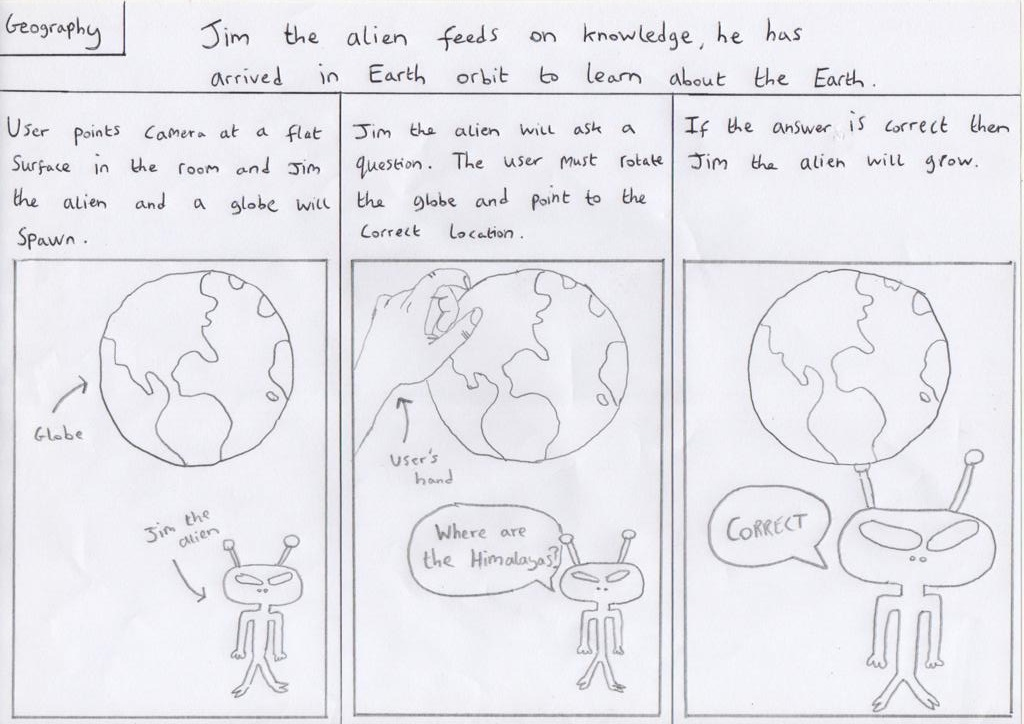 Geography
Jim the alien feeds on knowledge, he has
arrived in Earth orbit to learn about the Earth.
User points camera at a flat
surface in the room and Jim
the alien and a globe will
spawn.
Globe
Jim the
alien
Jim the alien will ask a
question. The user must rotate
the globe and point to the
correct location.
User's
hand
Where are
the Himalayas?
If the answer is correct then
Jim the alien will grow.
CORRECT